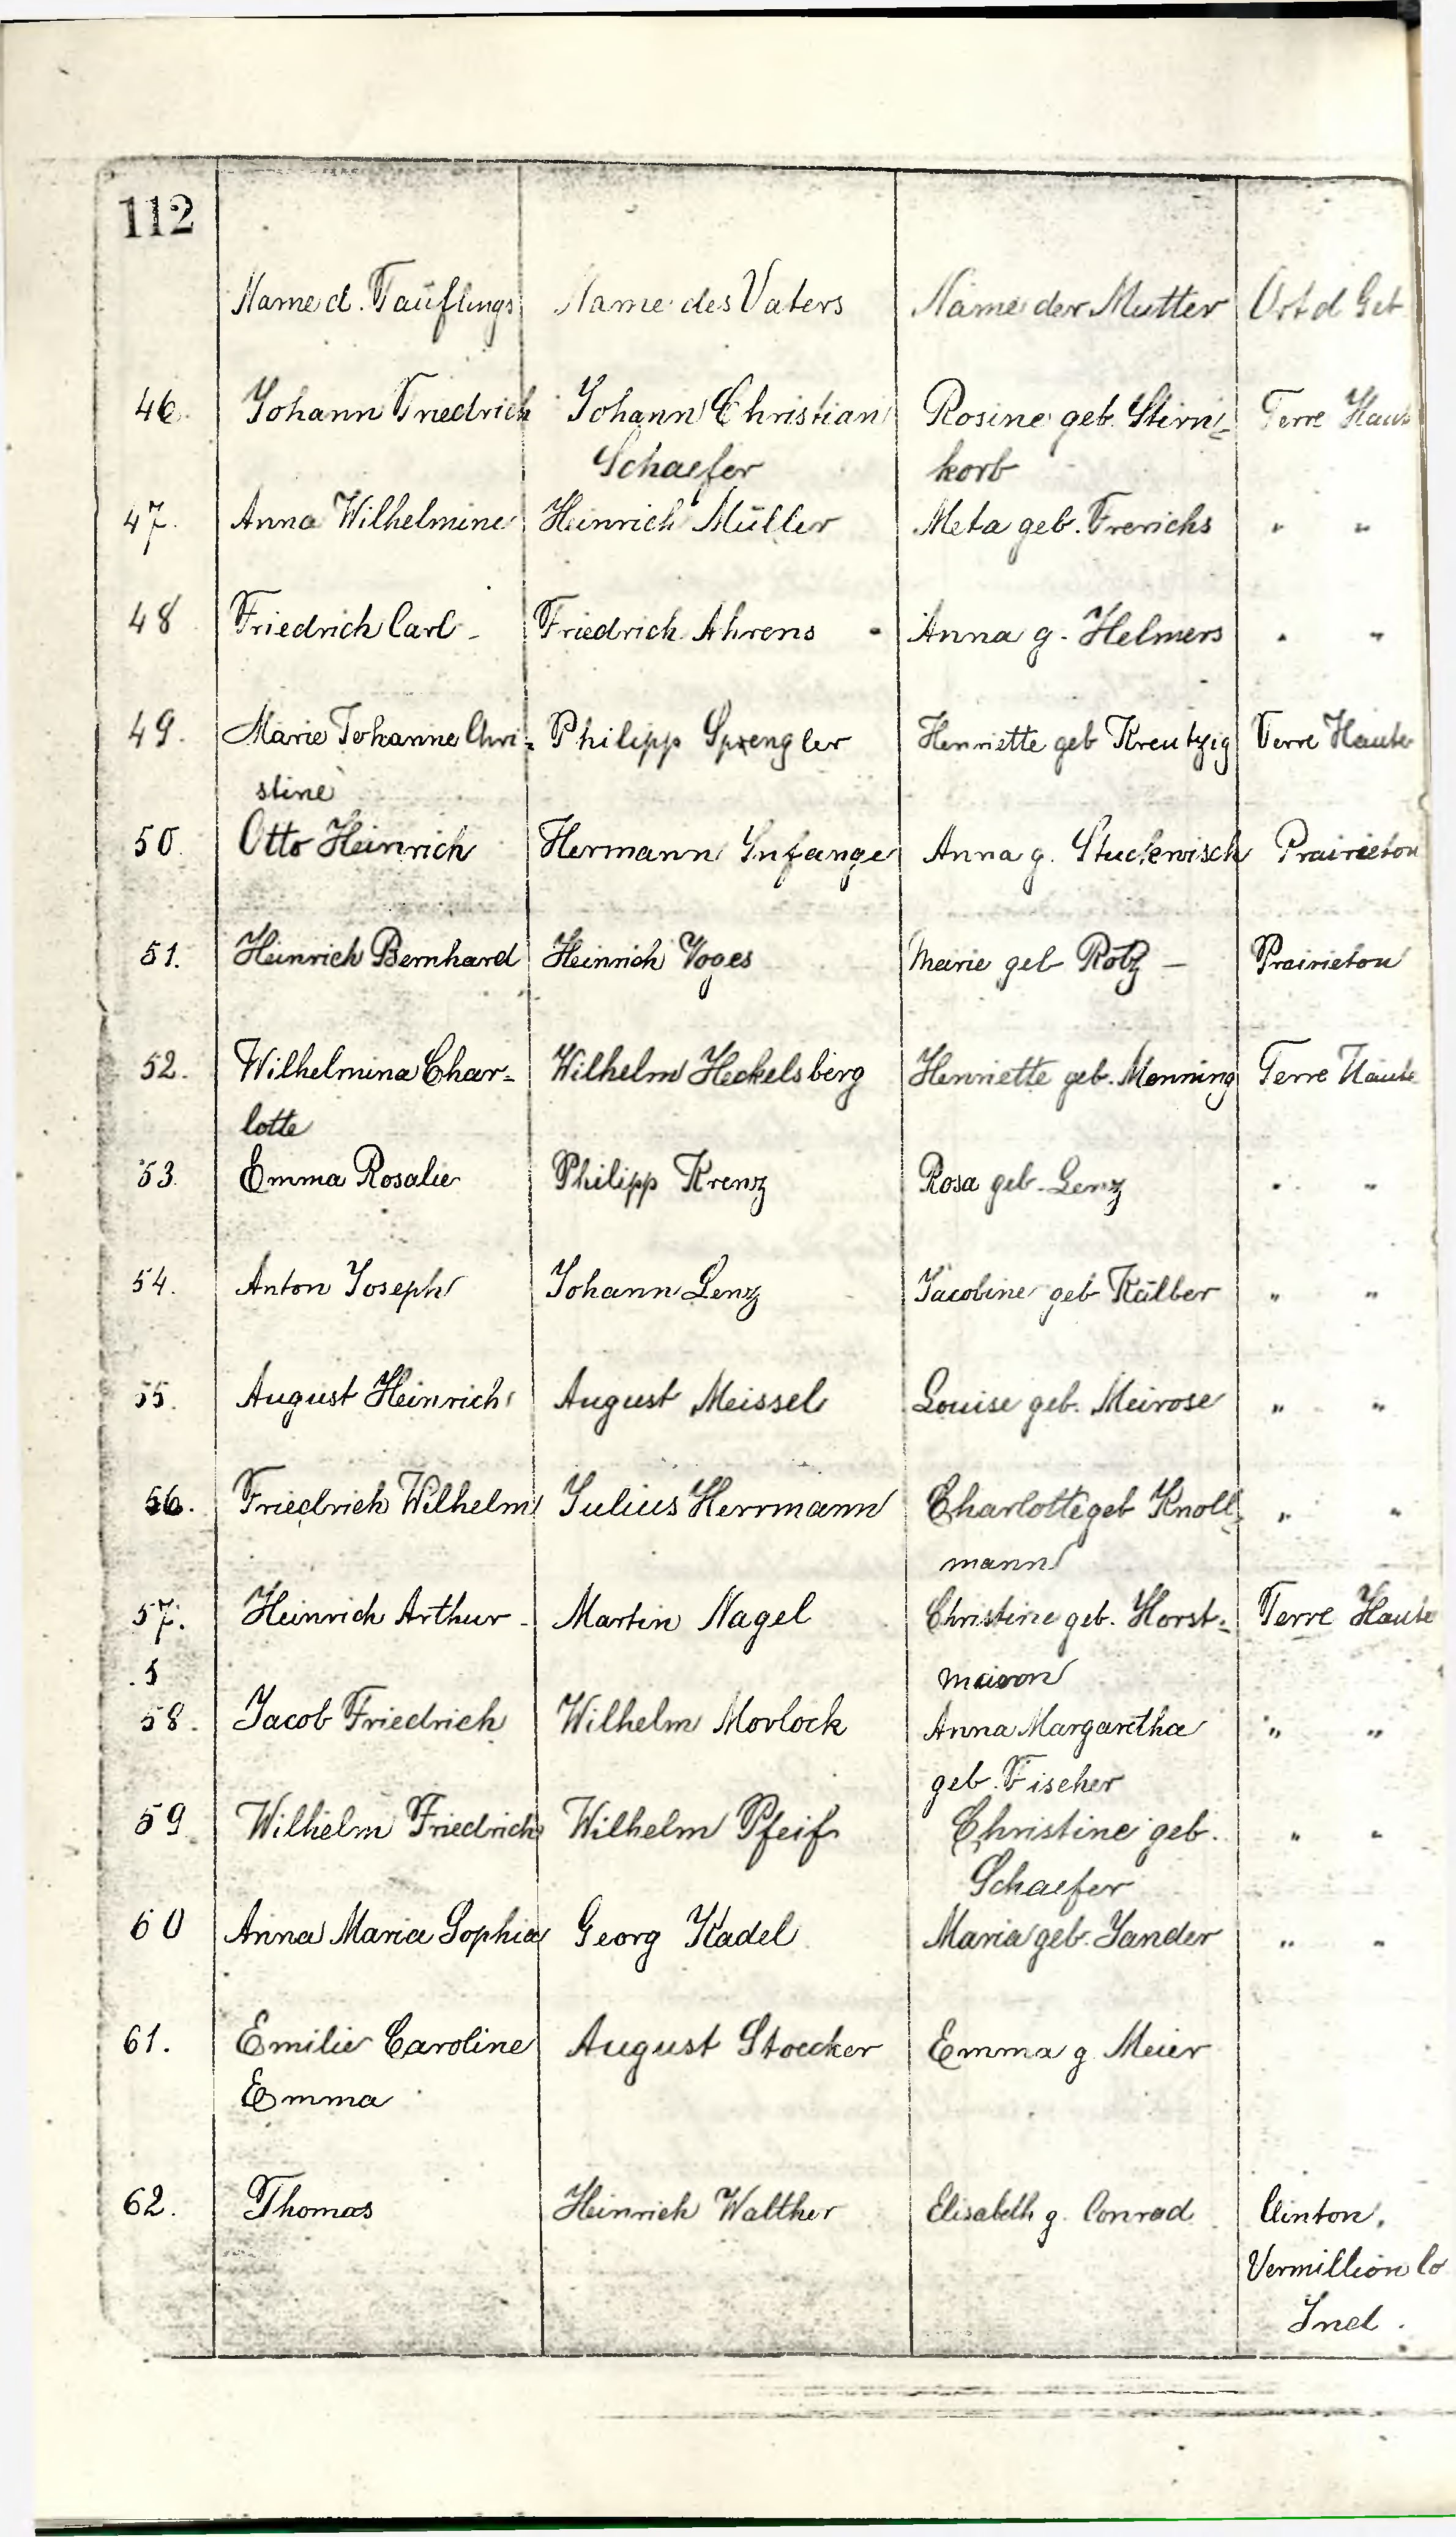 112
Name d. Täuflings Name des Vaters Name der Mutter Ort d Geb
46. Johann Friedrich Johann Christian Rosine geb. Stirn= Terre Haute
Schaefer korb
47. Anna Wilhelmine Heinrich Müller Meta geb. Frerichs " "
48 Friedrich Carl - Friedrich Ahrens Anna g. Helmers " "
49. Marie Johanne Chri= Philipp Sprengler Henriette geb Kreutzig Terre Haute
stine
50. Otto Heinrich Hermann Infange Anna g. Stuckwisch Prairieton
51. Heinrich Bernhard Heinrich Voges Marie geb Rotz - Prairieton
52. Wilhelmina Char= Wilhelm Heckelsberg Henriette geb. Menning Terre Haute
lotte
53. Emma Rosalie Philipp Krenz Rosa geb. Lenz " "
54. Anton Joseph Johann Lenz Jacobine geb Kälber " "
55. August Heinrich August Meissel Louise geb. Meirose " "
56. Friedrich Wilhelm Julius Herrmann Charlotte geb Knoll= " "
mann
57. Heinrich Arthur - Martin Nagel Christine geb. Horst= Terre Haute
5
58. Jacob Friedrich Wilhelm Morlock Anna Margaretha " "
geb. Fischer
59 Wilhelm Friedrich Wilhelm Pfeif Christine geb. " "
Schaefer
60 Anna Maria Sophia Georg Kadel Maria geb. Sander " "
61. Emilie Caroline August Stoecker Emma g. Meier
Emma
62. Thomas Heinrich Walther Elisabeth g. Conrad Clinton,
Vermillion Co
Ind.